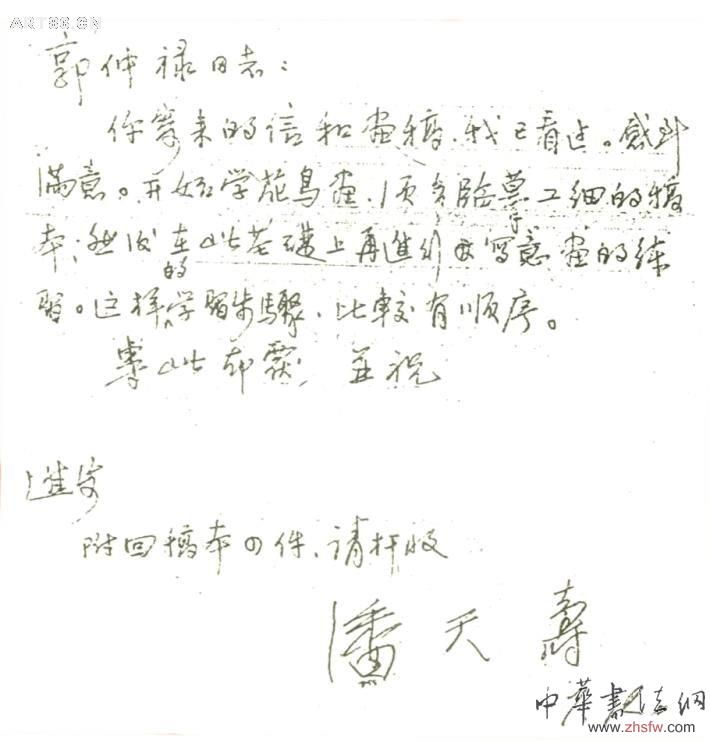 ART86.CN
郭仲禄同志：
你寄来的信和画稿、我已看过。感到
满意。开始学花鸟画、须多临摹工细的稿
本；然后在此基础上再进行写意画的练
习。这样的学习步骤、比较有顺序。
专此即覆 並祝
进步
附回稿本四件、请检收
潘天寿
中華書法網
www.zhsfw.com